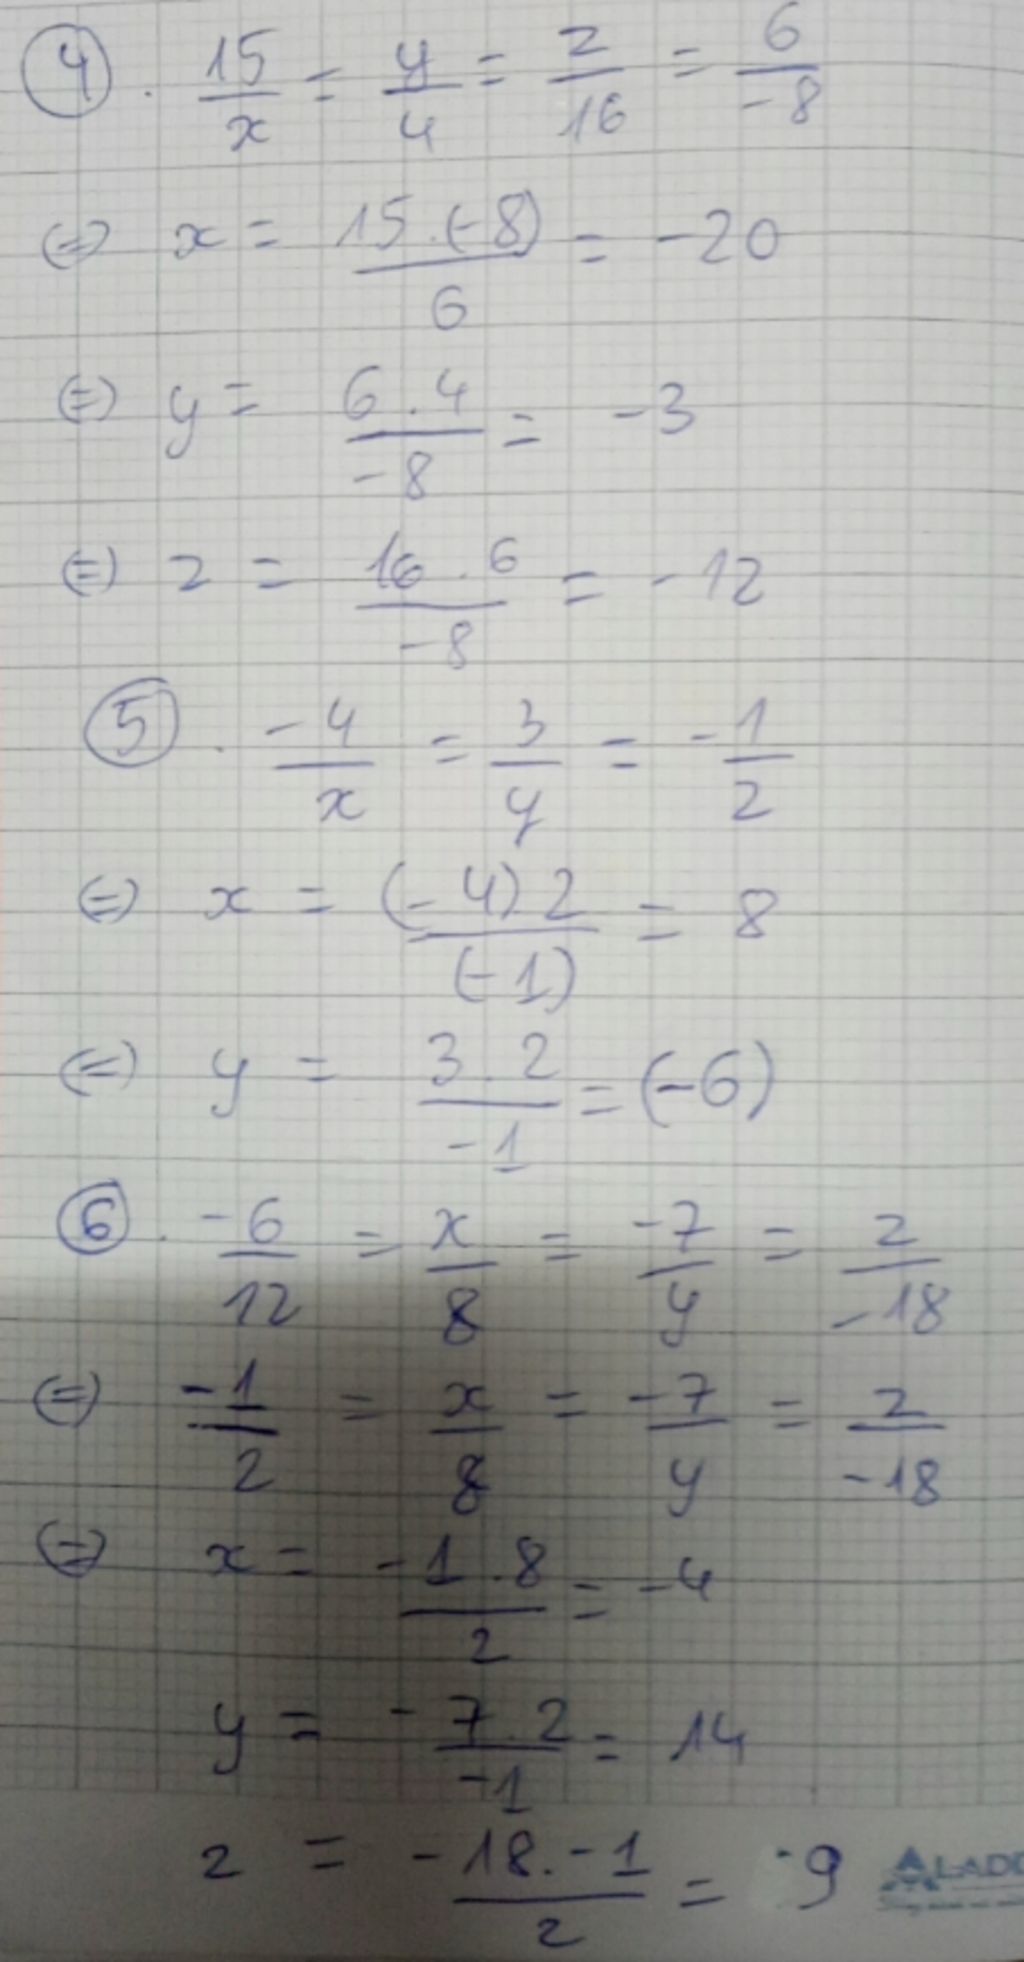 ④. 15/x = y/4 = z/16 = 6/-8
(=) x = 15.(-8)/6 = -20
(=) y = 6.4/-8 = -3
(=) z = 16.6/-8 = -12
⑤. -4/x = 3/y = -1/2
(=) x = (-4)2/(-1) = 8
(=) y = 3.2/-1 = (-6)
⑥. -6/12 = x/8 = -7/y = z/-18
(=) -1/2 = x/8 = -7/y = z/-18
(=) x = -1.8/2 = -4
y = -7.2/-1 = 14
z = -18.-1/2 = 9